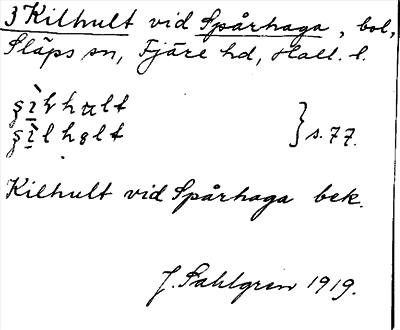 3 Kilhult vid Spårhaga, bol,
Släps sn, Fjäre hd, Hall. l.
} s. 77.
Kilhult vid Spårhaga bek.
J. Sahlgren 1919.